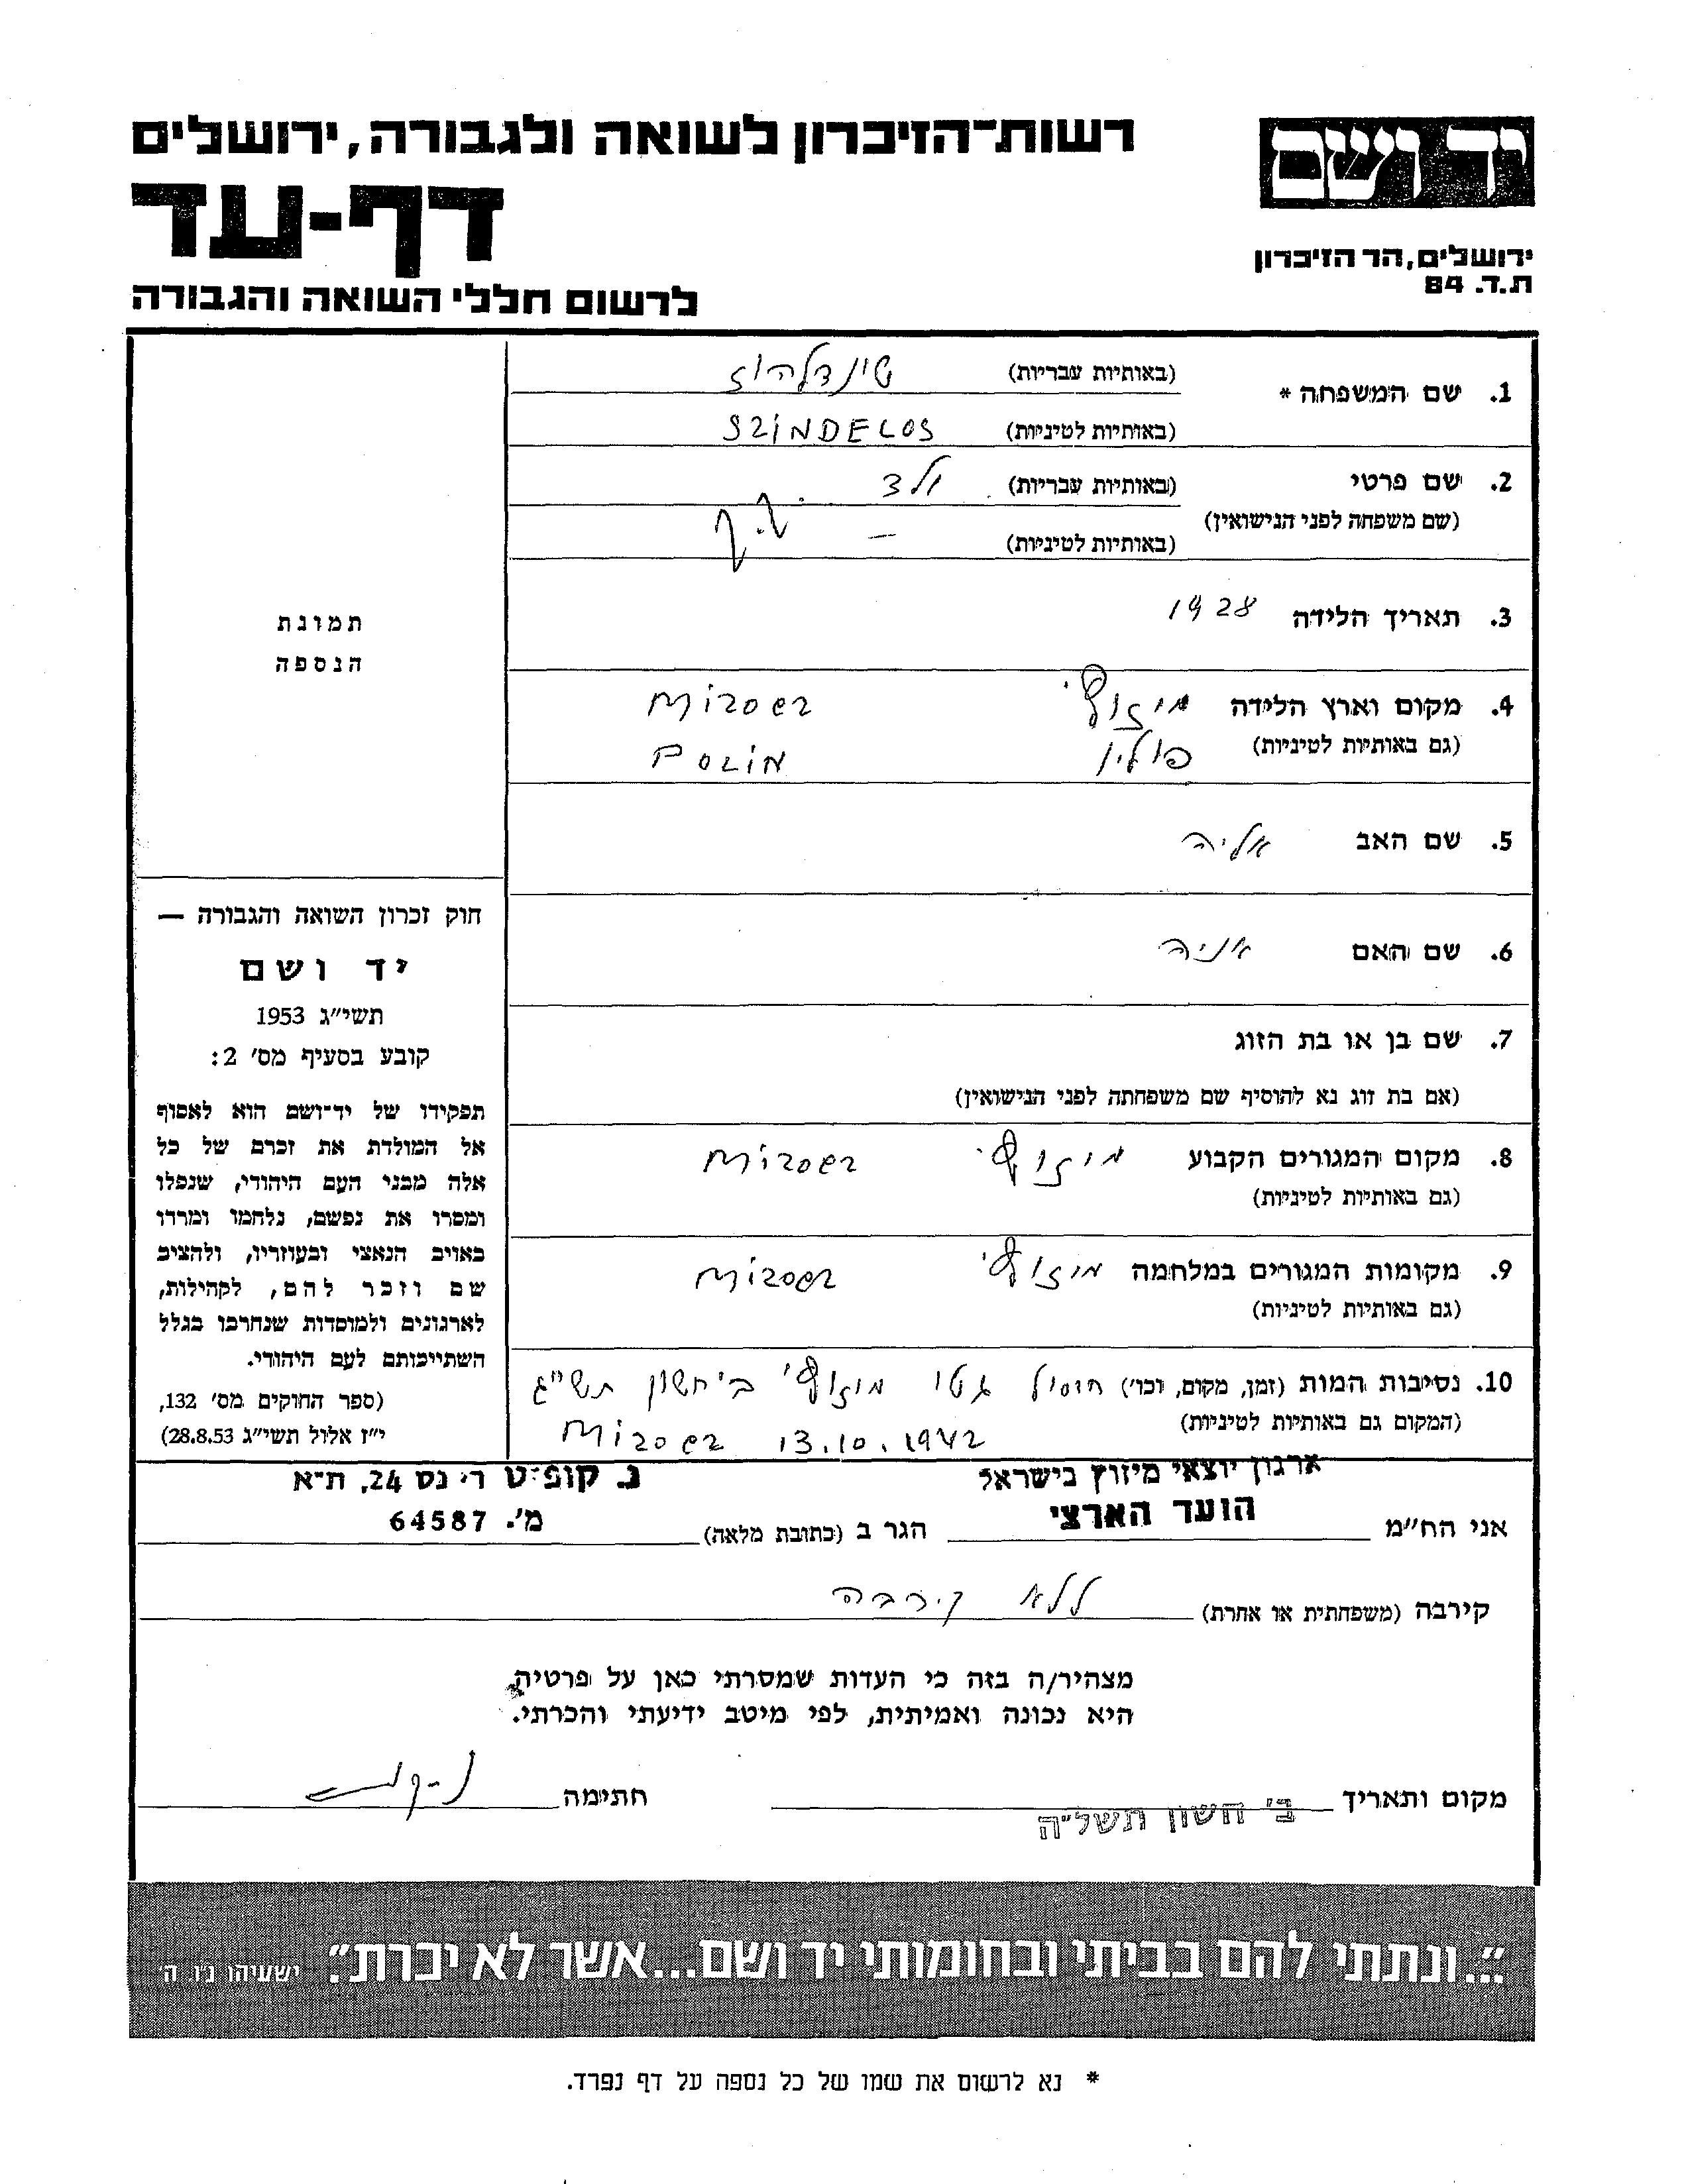 רשות־הזיכרון לשואה ולגבורה, ירושלים
יד ושם
דף-עד
ירושלים, הר הזיכרון
ת.ד. 84
לרשום חללי השואה והגבורה
1. שם המשפחה * (באותיות עבריות) שינדלהוז
(באותיות לטיניות) SZINDELOS
2. שם פרטי (באותיות עבריות) ולד
(שם משפחה לפני הנישואין)
(באותיות לטיניות) —
3. תאריך הלידה 1928
4. מקום וארץ הלידה מיזוץ' Mizoez
(גם באותיות לטיניות) פולין Polin
5. שם האב אליה
6. שם האם אניה
7. שם בן או בת הזוג
(אם בת זוג נא להוסיף שם משפחתה לפני הנישואין)
8. מקום המגורים הקבוע מיזוץ' Mizoez
(גם באותיות לטיניות)
9. מקומות המגורים במלחמה מיזוץ' Mizoez
(גם באותיות לטיניות)
10. נסיבות המות (זמן, מקום, וכו') חיסול גטו מיזוץ' ב' חשון תש"ג
(המקום גם באותיות לטיניות) Mizoez 13.10.1942
תמונת
הנספה
חוק זכרון השואה והגבורה —
יד ושם
תשי"ג 1953
קובע בסעיף מס' 2:
תפקידו של יד־ושם הוא לאסוף
אל המולדת את זכרם של כל
אלה מבני העם היהודי, שנפלו
ומסרו את נפשם, נלחמו ומרדו
באויב הנאצי ובעוזריו, ולהציב
שם וזכר להם, לקהילות,
לארגונים ולמוסדות שנחרבו בגלל
השתייכותם לעם היהודי.
(ספר החוקים מס' 132,
י"ז אלול תשי"ג 28.8.53)
ארגון יוצאי מיזוץ בישראל נ. קופיט ר' נס 24, ת"א
אני הח"מ הועד הארצי הגר ב (כתובת מלאה) מ'. 64587
קירבה (משפחתית או אחרת) ללא קירבה
מצהיר/ה בזה כי העדות שמסרתי כאן על פרטיה,
היא נכונה ואמיתית, לפי מיטב ידיעתי והכרתי.
מקום ותאריך ב' חשון תשל"ה חתימה
"...ונתתי להם בביתי ובחומותי יד ושם...אשר לא יכרת". ישעיהו נ"ו ה'
* נא לרשום את שמו של כל נספה על דף נפרד.